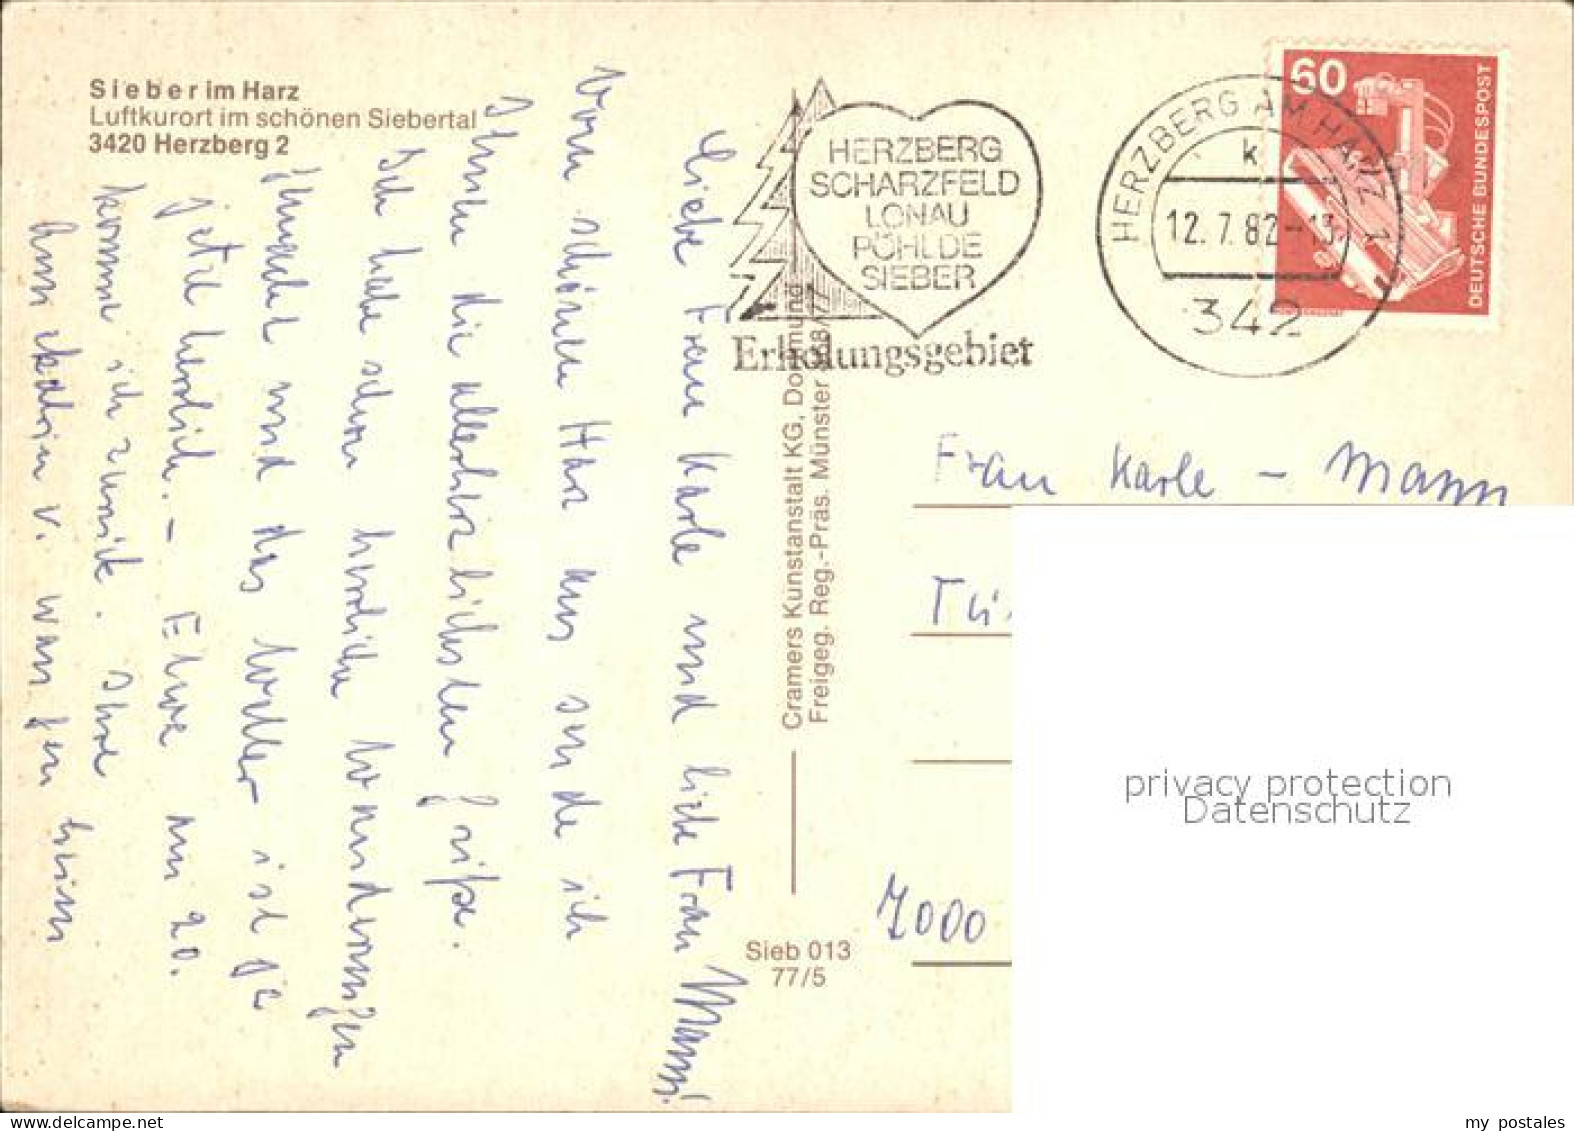 Sieber im Harz
Luftkurort im schönen Siebertal
3420 Herzberg 2
Liebe Frau Karle und liebe Frau Mann!
Vom schönen Harz aus sende ich
Ihnen die allerherzlichsten Grüße.
Ich habe schon herrliche Wanderungen
gemacht und das Wetter ist ja
jetzt herrlich. – Etwa am 20.
komme ich zurück. Ihre
Cramers Kunstanstalt KG, Dortmund
Freigeg. Reg.-Präs. Münster
Sieb 013
77/5
HERZBERG
SCHARZFELD
LONAU
PÖHLDE
SIEBER
Erholungsgebiet
HERZBERG AM HARZ 1
k
12.7.82-13
342
60
DEUTSCHE BUNDESPOST
Frau Karle - Mann
Tü
7000
privacy protection
Datenschutz
my postales